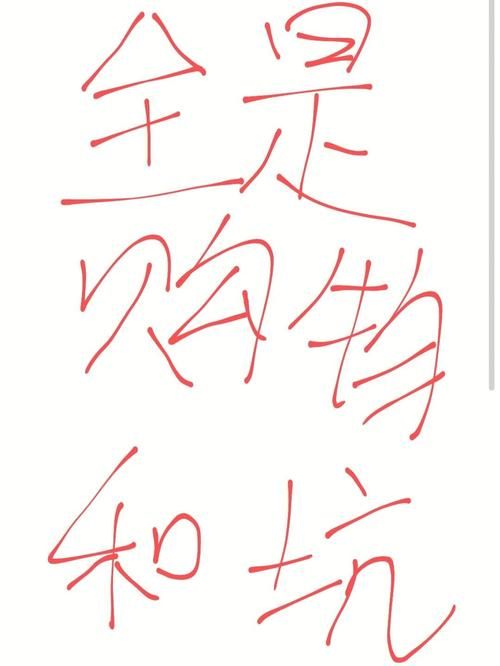 全是
购物
和坑